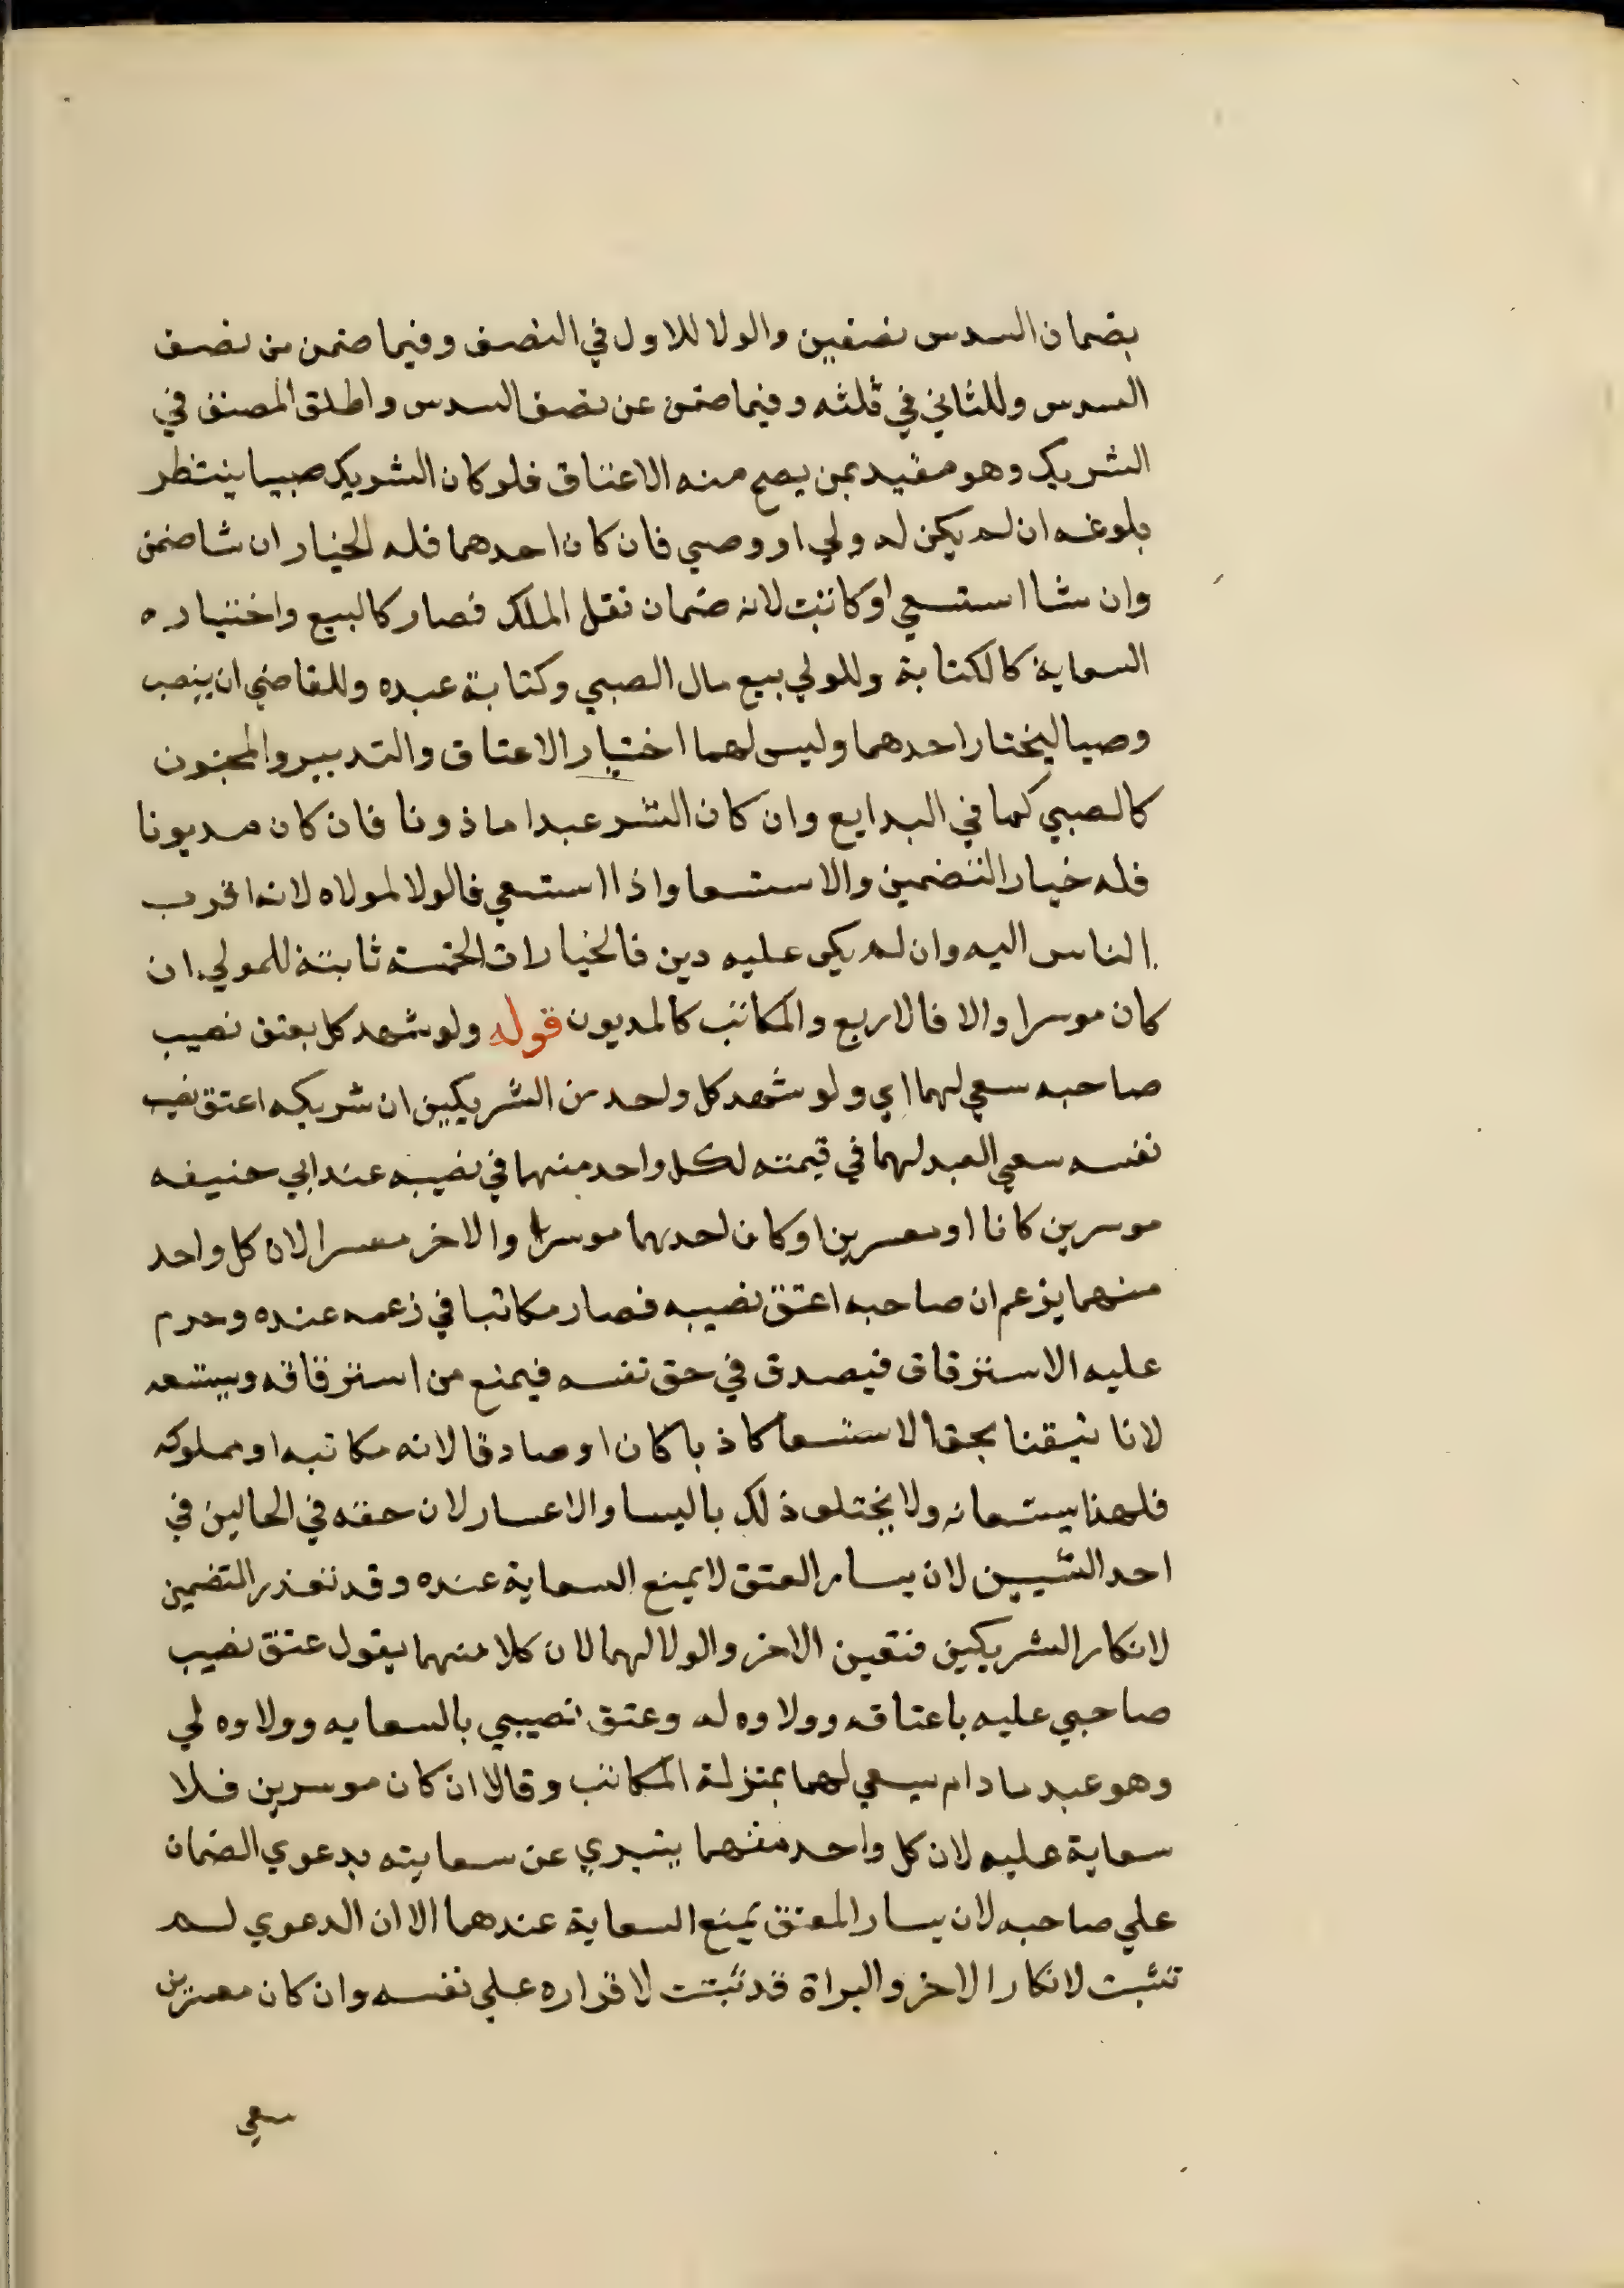 بضمان السدس نصفين والولا للاول في النصف وفيما ضمن من نصف
السدس وللثاني في ثلثه وفيما ضمن عن نصف السدس واطلق المصنف في
الشريك وهو مقيد بمن يصح منه الاعتاق فلو كان الشريك صبيا ينتظر
بلوغه ان لم يكن له ولي او وصي فان كان احدهما فله الخيار ان شا ضمن
وان شا استسعي او كاتبت لانه ضمان نقل الملك فصار كالبيع واختياره
السعاية كالكتابة وللولي بيع مال الصبي وكتابة عبده وللقاضي ان ينصب
وصيا ليختار احدهما وليس لهما اختيار الاعتاق والتدبير والمجنون
كالصبي كما في البدايع وان كان الشر عبدا ماذونا فان كان مديونا
فله خيار التضمين والاستسعا واذا استسعي فالولا لمولاه لانه اقرب
الناس اليه وان لم يكن عليه دين فالخيارات الخمسة ثابتة للمولي ان
كان موسرا والا فالاربع والمكاتب كالمديون قوله ولو شهد كل بعتق نصيب
صاحبه سعي لهما اي ولو شهد كل واحد من الشريكين ان شريكه اعتق نصيب
نفسه سعي العبد لهما في قيمته لكل واحد منهما في نصيبه عند ابي حنيفه
موسرين كانا او معسرين او كان احدهما موسرا والاخر معسرا لان كل واحد
منهما يزعم ان صاحبه اعتق نصيبه فصار مكاتبا في زعمه عنده وحرم
عليه الاسترقاق فيصدق في حق نفسه فيمنع من استرقاقه ويستسعه
لانا تيقنا بحق الاستسعا كاذبا كان او صادقا لانه مكاتبه او مملوكه
فلهذا يستسعانه ولا يختلف ذلك باليسا والاعسار لان حقه في الحالين في
احد الشيين لان يسار العتق لا يمنع السعاية عنده وقد تعذر التضمين
لانكار الشريكين فتعين الاخر والولا لهما لان كلا منهما يقول عتق نصيب
صاحبي عليه باعتاقه وولاوه له وعتق نصيبي بالسعايه وولاوه لي
وهو عبد ما دام يسعي لهما بمنزلة المكاتب وقالا ان كان موسرين فلا
سعاية عليه لان كل واحد منهما يتبري عن سعايته بدعوي الضمان
علي صاحبه لان يسار المعتق يمنع السعاية عندهما الا ان الدعوي لم
تثبت لانكار الاخر والبراة قد ثبتت لاقراره علي نفسه وان كان معسرين
سعي